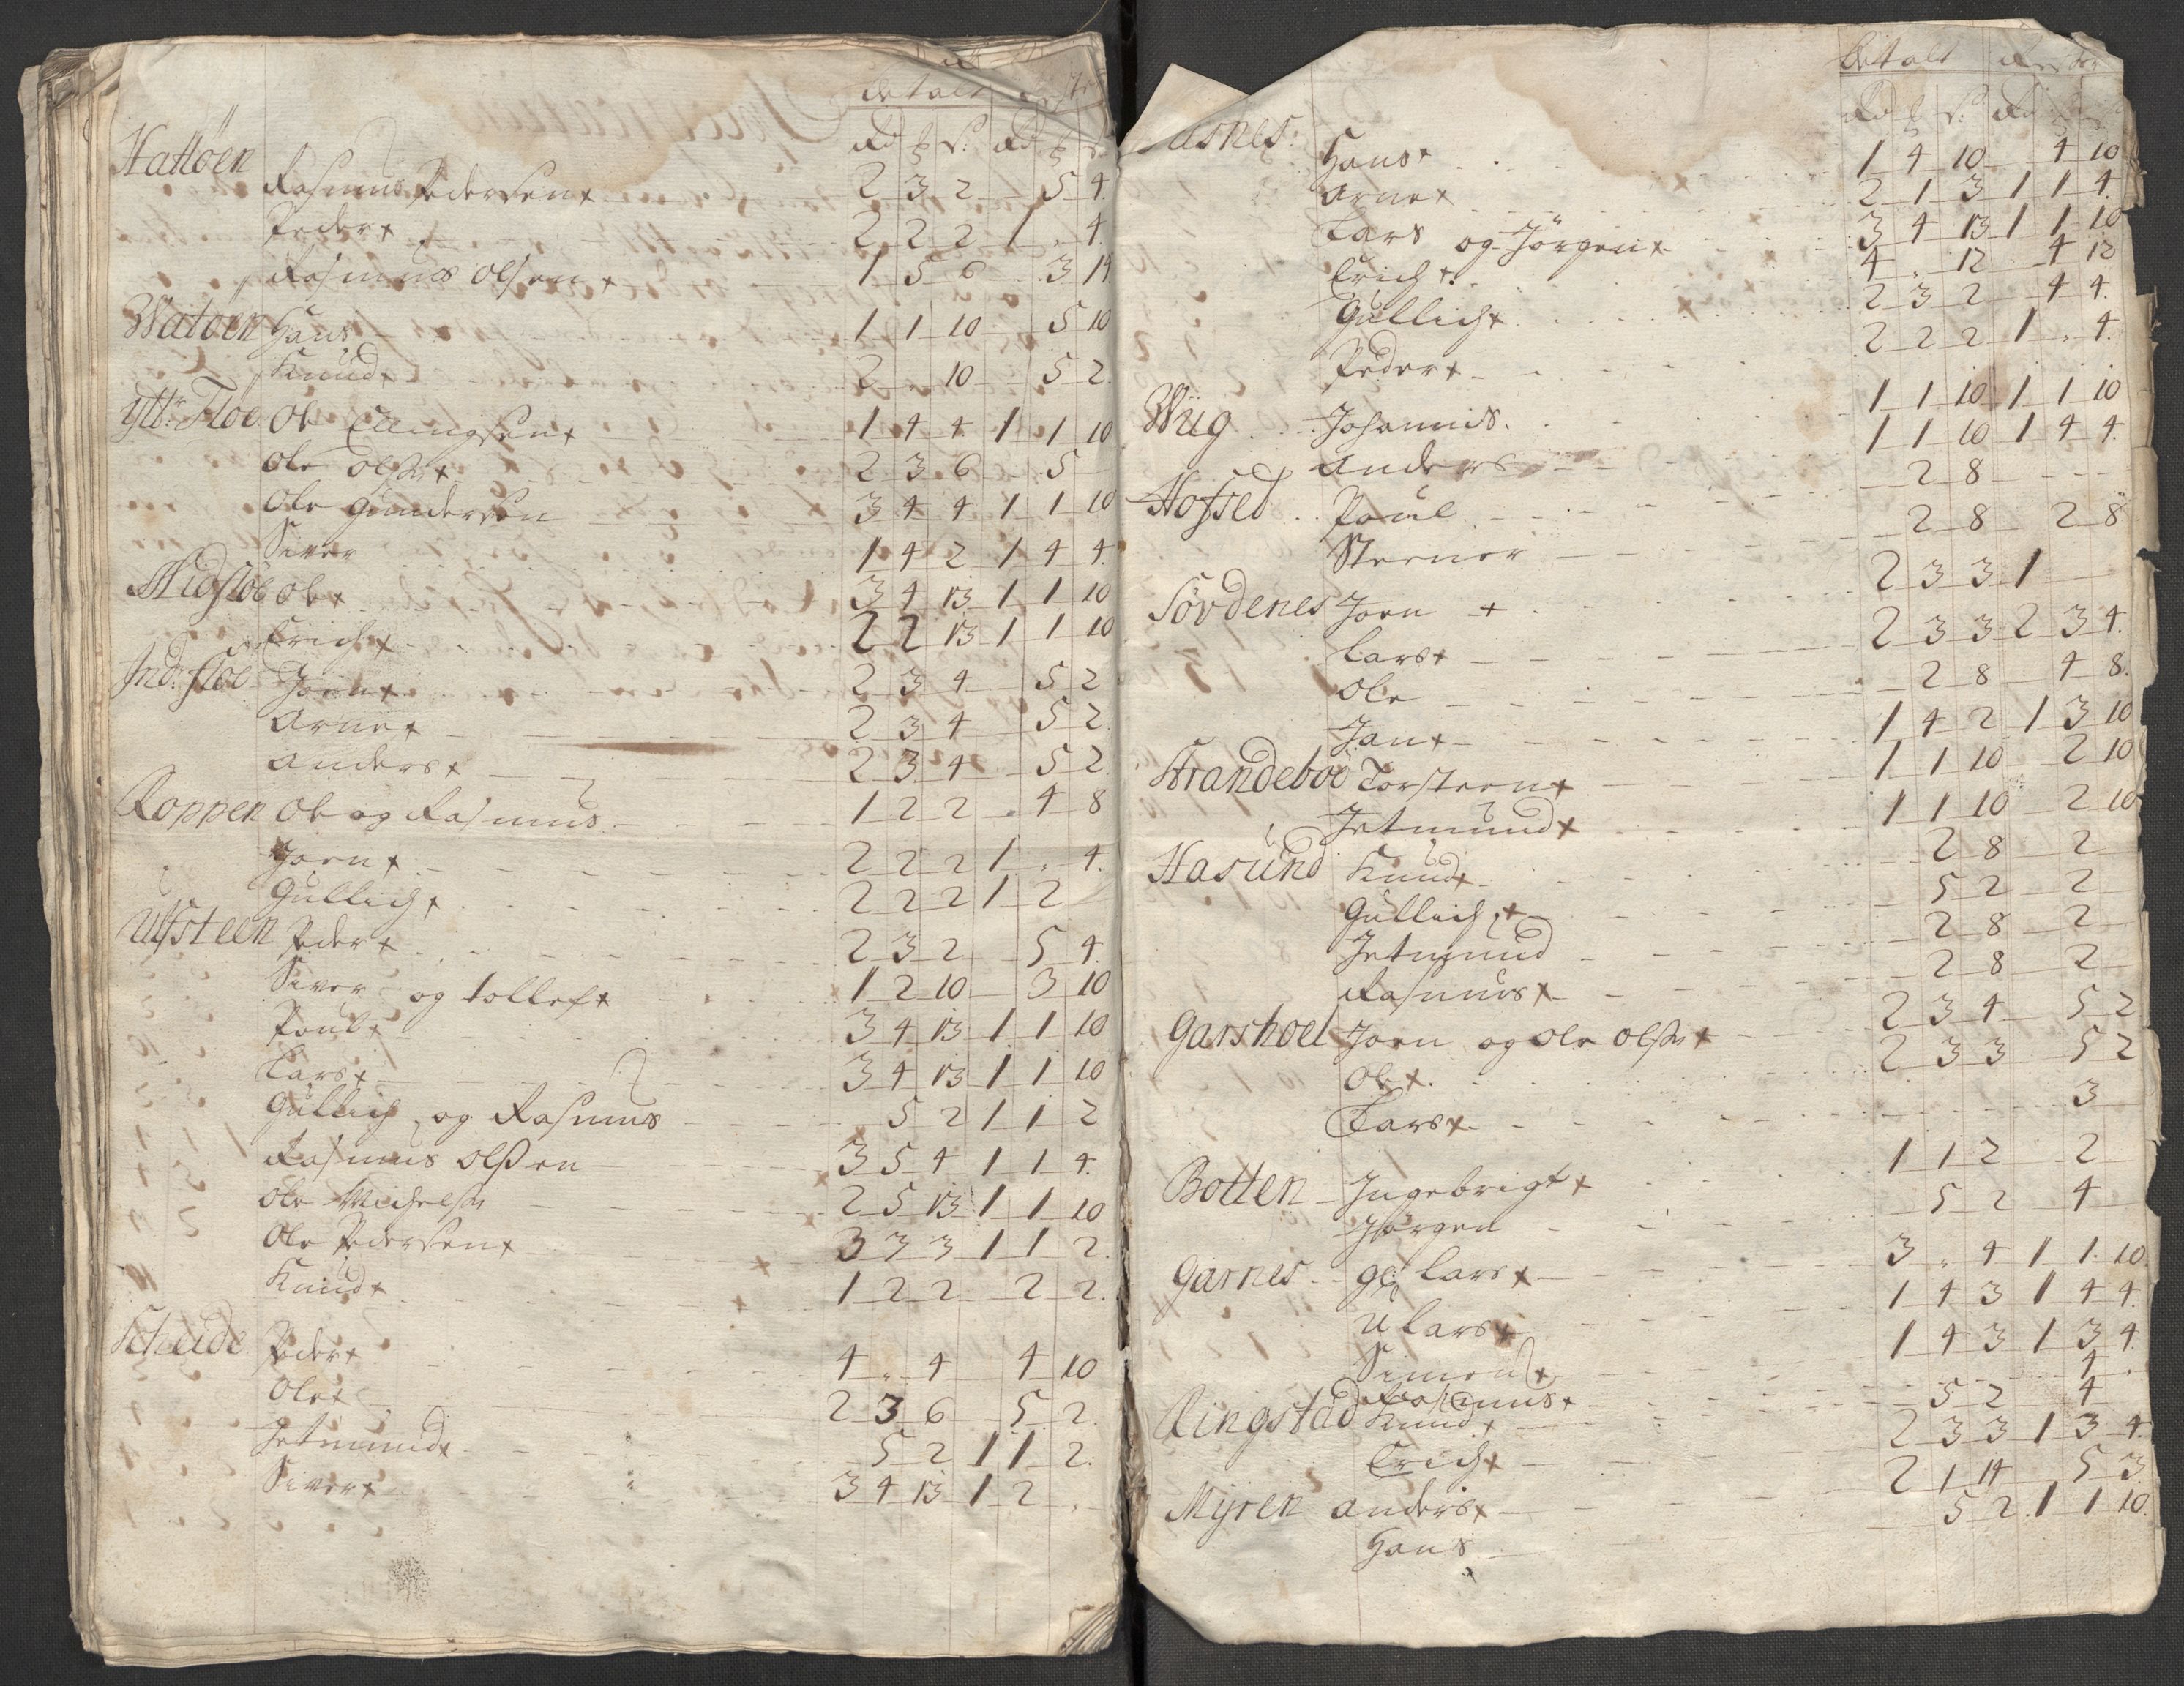 betalt
Rd ƺ s. Rd ƺ s.
Hattøen
Rasmus Pedersen + 2 3 2 5 4.
Peder + 2 2 2 1 . 4.
Rasmus Olsen + 1 5 6 3 14.
Watøen Hans 1 1 10 5 10
Knud + 2 10 5 2.
Ytt: Fløe Ole Ellingsen + 1 4 4 1 1 10
Ole Olsn + 2 3 6 5
Ole Gundersen 3 4 4 1 1 10
Siver 1 4 2 1 4 4.
Midfløe Ole + 3 4 13 1 1 10
Erich + 2 2 13 1 1 10
Ind: fløe Joen + 2 3 4 5 2
Arne + 2 3 4 5 2.
Anders + 2 3 4 5 2
Roppen Ole og Rasmus 1 2 2 . 4 8
Joen + 2 2 2 1 . 4.
Gullich + 2 2 2 1 2
Ulfsteen Peder + 2 3 2 5 4.
Siver og tollef + 1 2 10 3 10
Poul + 3 4 13 1 1 10
Lars + 3 4 13 1 1 10
Gullich og Rasmus 5 2 1 1 2
Rasmus Olsen 3 5 4 1 1 4.
Ole Michelsn 2 5 13 1 1 10
Ole Pedersen + 3 3 3 1 1 2.
Knud + 1 2 2 2 2.
Scheide Peder + 4 . 4 4 10
Ole + 2 3 6 5 2.
Jetmund + 5 2 1 1 2.
Siver + 3 4 13 1 2 .
betalt
Rd ƺ s: Rd
Hans + 1 4 10 4 10
Arne + 2 1 3 1 1 4.
Lars og Jørgen + 3 4 13 1 1 10
Erich + 4 . 12 4 12
Gullich + 2 3 2 4 4.
Peder + 2 2 2 1 . 4.
Wiig Johannis. 1 1 10 1 1 10
Anders 1 1 10 1 4 4.
Hofset Poul 2 8
Steener 2 8 2 8
Sørdenes Joen + 2 3 3 1
Lars + 2 3 3 2 3 4.
Ole 2 8 4 8.
Jan + 1 4 2 1 3 10
Strandebøe Torsteen + 1 1 10 2 10
Jetmund + 1 1 10 2 10
Hasund Knud + 2 8 2
Gullich + 5 2 2
Jetmund 2 8 2
Rasmus + 2 8 2
Garshoel Joen og Ole Olsn + 2 3 4 5 2
Ole + 2 3 3 5 2
Lars + 3
Botten Ingebrigt + 1 1 2 2
Jørgen 5 2 4
Garnes gl: Lars + 3 . 4 1 1 10.
U Lars + 1 4 3 1 4 4.
Simen + 1 4 3 1 3 4.
Rasmus + 4 .
Ringstad Knud + 5 2 4
Erich + 2 3 3 1 3 4.
Myren Anders + 2 1 14 5 3
Hans 5 2 1 1 10.